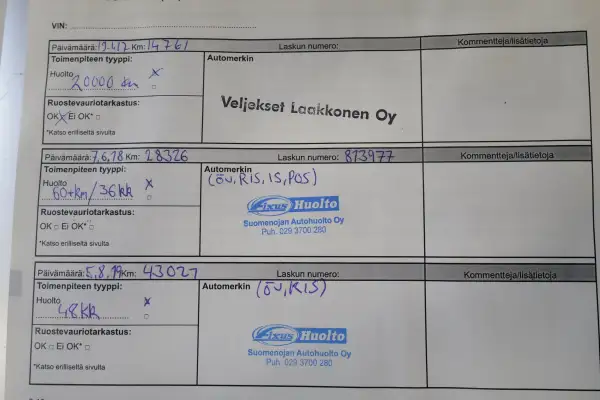 VIN:
Päivämäärä: 19.4.17 Km: 14761 Laskun numero: Kommentteja/lisätietoja
Toimenpiteen tyyppi: Automerkin
Huolto X
20000 km
Ruostevauriotarkastus:
OK X Ei OK*
*Katso erilliseltä sivulta
Veljekset Laakkonen Oy
Päivämäärä: 7.6.18 Km: 28326 Laskun numero: 873977 Kommentteja/lisätietoja
Toimenpiteen tyyppi: Automerkin
(ÖV, RIS, IS, POS)
Huolto X
60tkm/36kk
Ruostevauriotarkastus:
OK Ei OK*
*Katso erilliseltä sivulta
Fixus Huolto
Suomenojan Autohuolto Oy
Puh. 029 3700 280
Päivämäärä: 5.8.19 Km: 43027 Laskun numero: Kommentteja/lisätietoja
Toimenpiteen tyyppi: Automerkin (ÖV, RIS)
Huolto X
48kk
Ruostevauriotarkastus:
OK Ei OK*
*Katso erilliseltä sivulta
Fixus Huolto
Suomenojan Autohuolto Oy
Puh. 029 3700 280